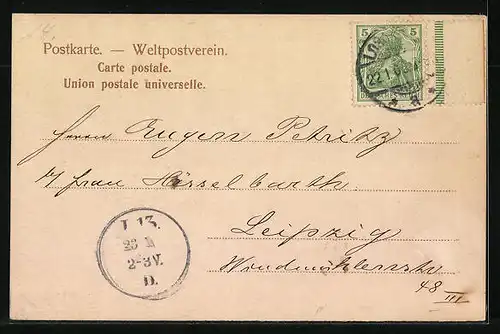 Postkarte. — Weltpostverein.
Carte postale.
Union postale universelle.
5 5
22.1.
Herrn Eugen Petritz
b/ Frau Hässelbarth
Leipzig
Windmühlenstr
48 III
L 13.
23
2-3V.
D.